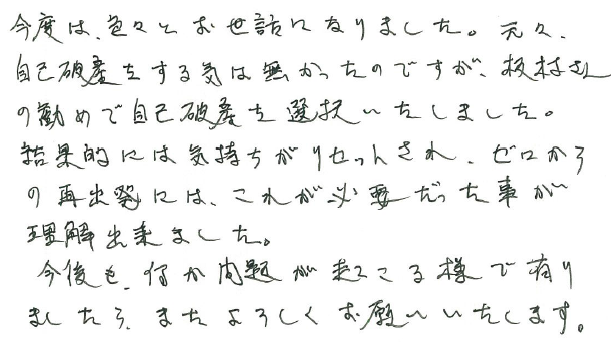 今度は、色々とお世話になりました。元々、
自己破産をする気は無かったのですが、板村さん
の勧めで自己破産を選択いたしました。
結果的には気持ちがリセットされ、ゼロから
の再出発には、これが必要だった事が
理解出来ました。
今後も、何か問題が起こる様で有り
ましたら、またよろしくお願いいたします。